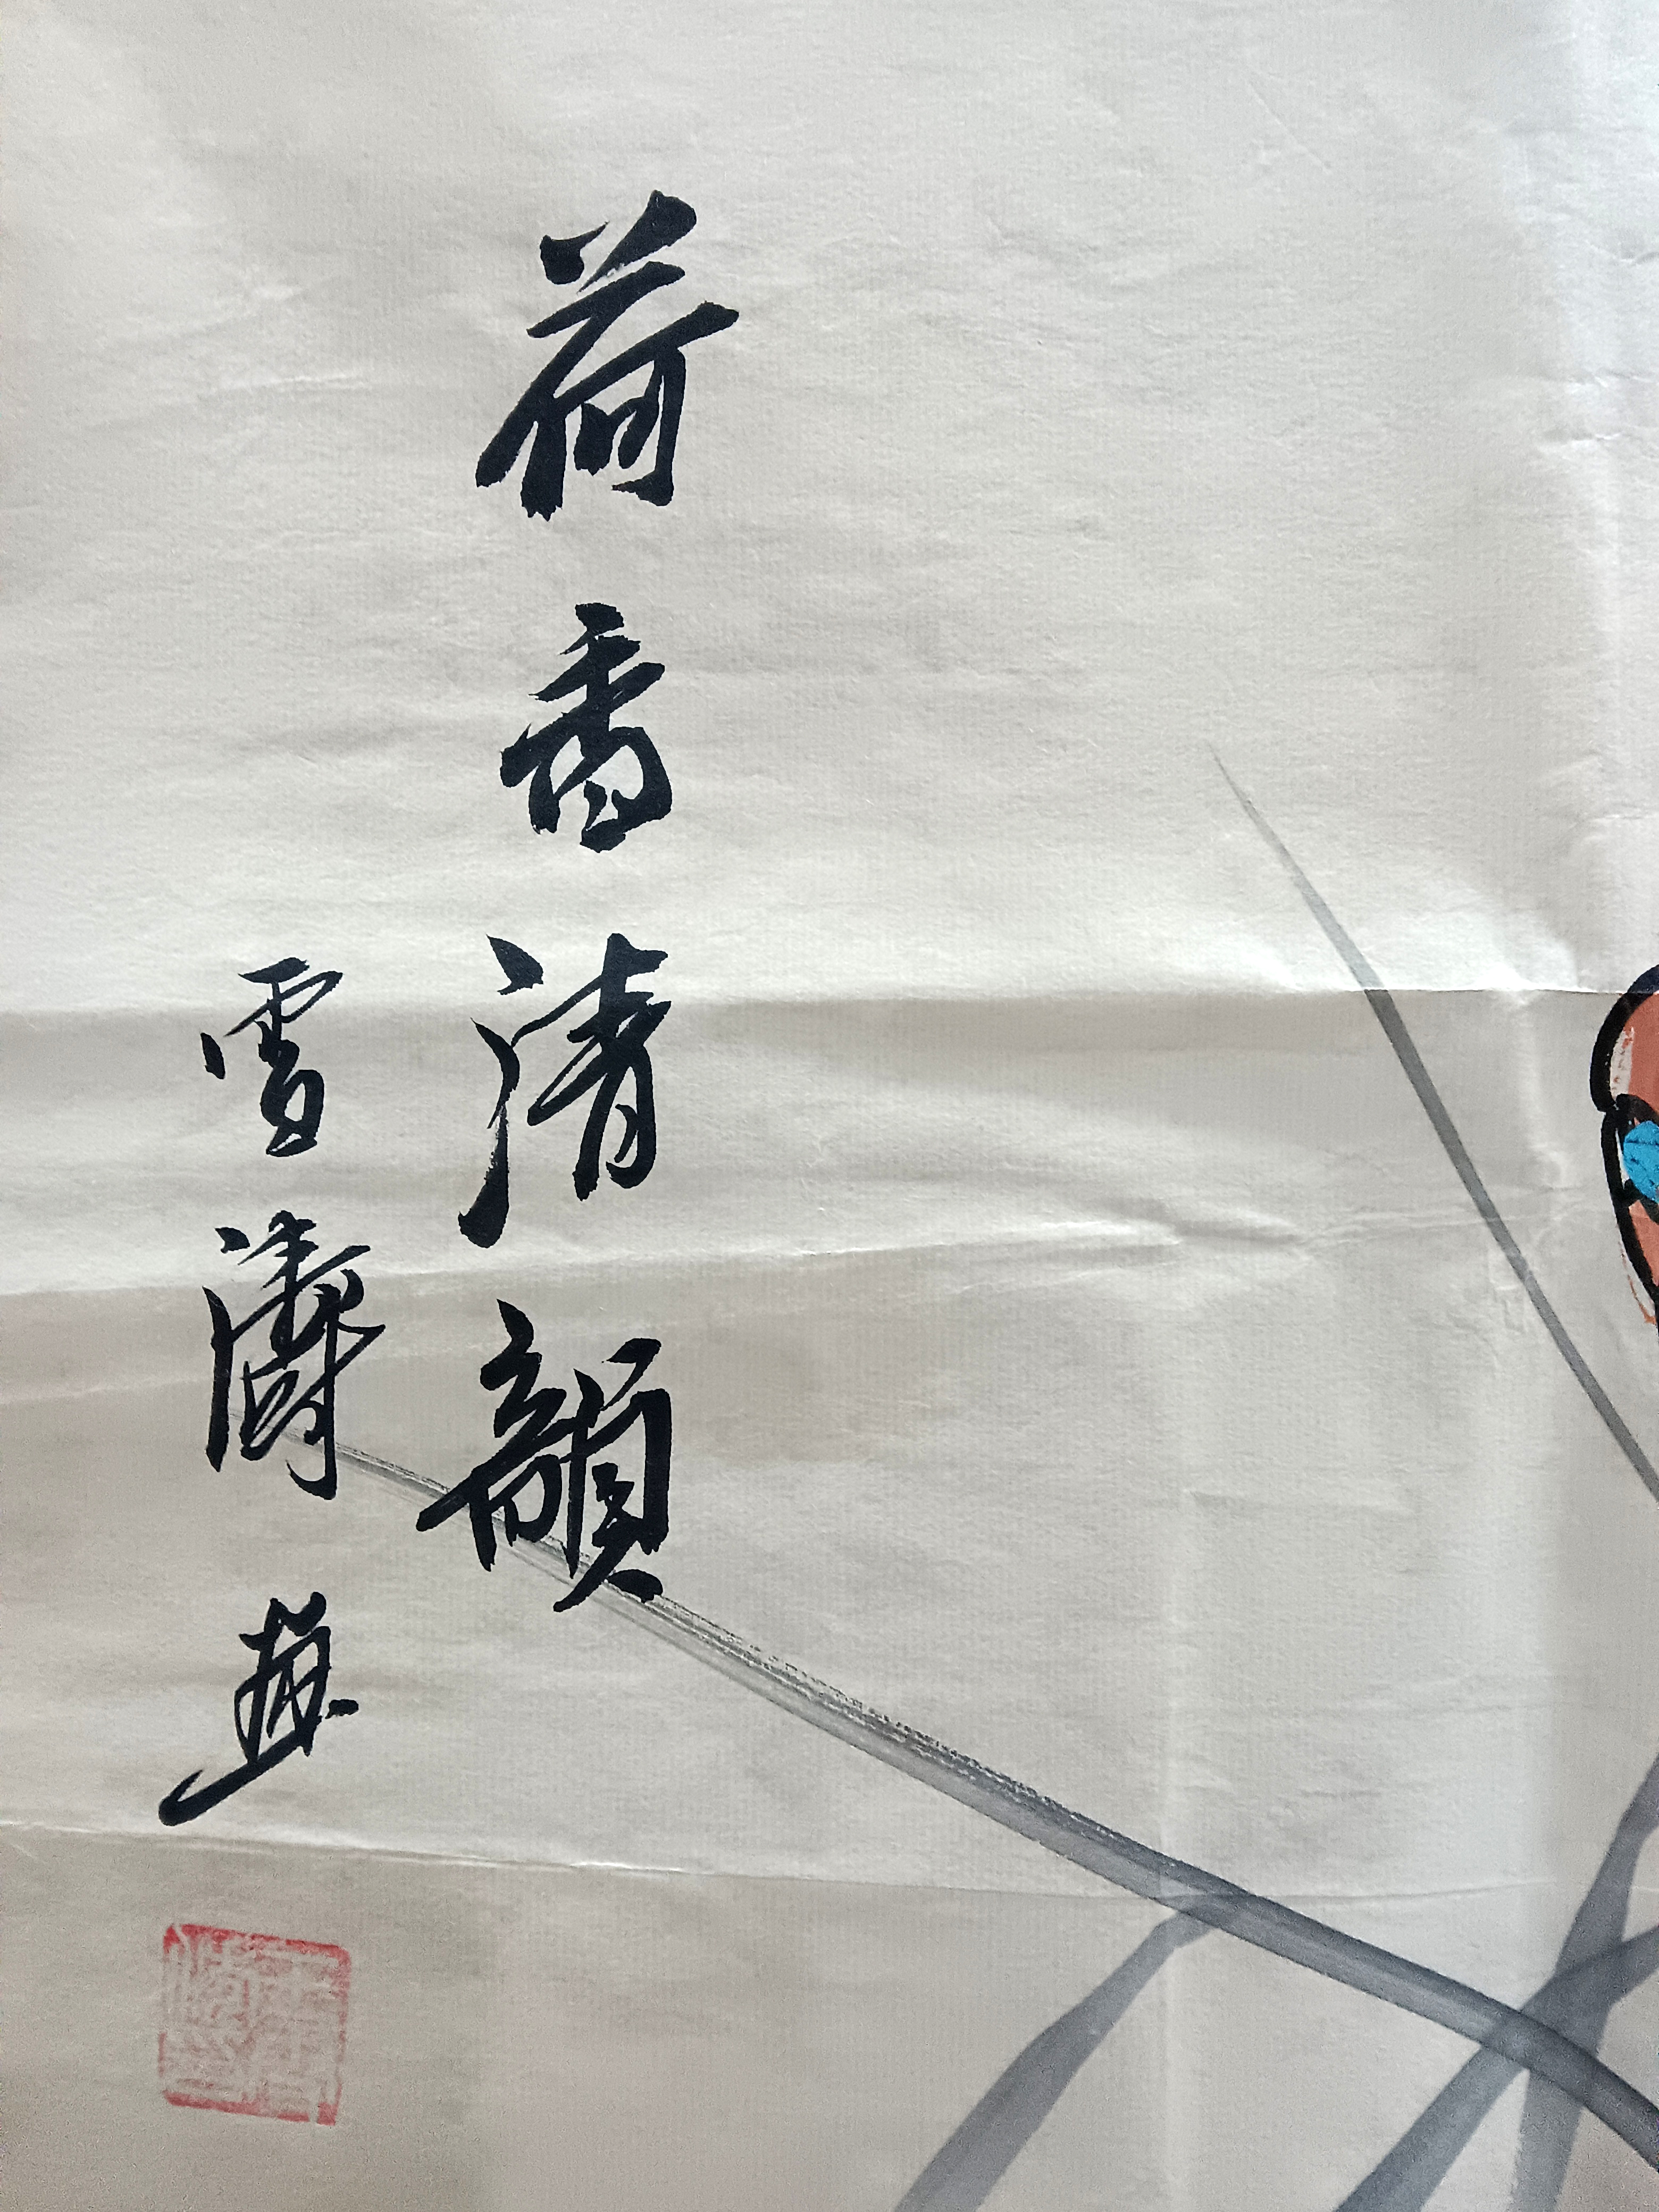 荷香清韻
雪濤画